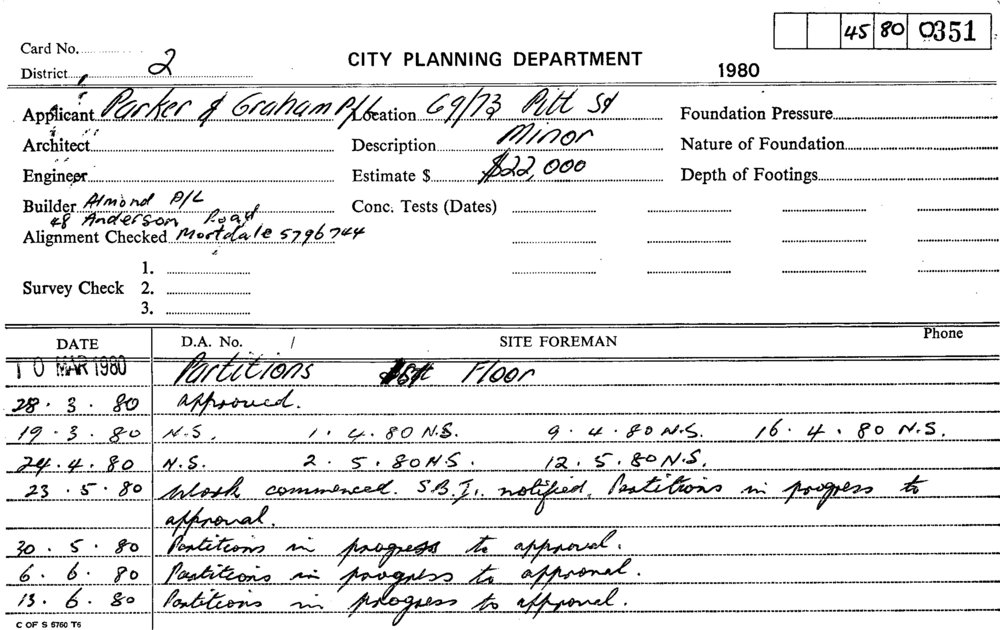 45 80 0351
Card No.
CITY PLANNING DEPARTMENT
District 2
1980
Applicant Parker & Graham P/L Location 69/73 Pitt St Foundation Pressure
Architect Description Minor Nature of Foundation
Engineer Estimate $ $22,000 Depth of Footings
Builder Almond P/L Conc. Tests (Dates)
48 Anderson Road
Alignment Checked Mortdale 5796744
1.
Survey Check 2.
3.
DATE D.A. No. / SITE FOREMAN Phone
10 MAR 1980 Partitions Floor
28.3.80 approved.
19.3.80 N.S. 1.4.80 N.S. 9.4.80 N.S. 16.4.80 N.S.
24.4.80 N.S. 2.5.80 N.S. 12.5.80 N.S.
23.5.80 Work commenced. S.B.I. notified. Partitions in progress to
approval.
30.5.80 Partitions in progress to approval.
6.6.80 Partitions in progress to approval.
13.6.80 Partitions in progress to approval.
C OF S 5760 T6